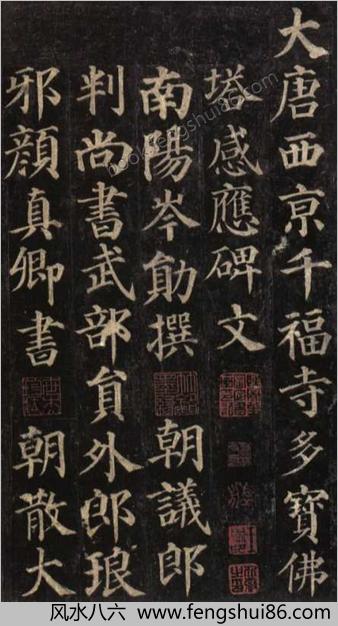 大唐西京千福寺多寶佛
塔感應碑文
南陽岑勛撰 朝議郎
判尚書武部員外郎琅
邪顏真卿書 朝散大
bbs.fengshui86.com
风水八六 www.fengshui86.com